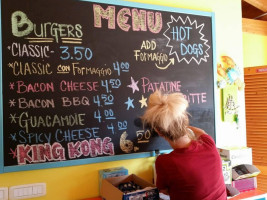 BURGERS
MENU
*CLASSIC- 3.50
*CLASSIC CON FORMAGGIO 4.00
*BACON CHEESE 4.50
*BACON BBQ 4.00
*GUACAMOLE 4.00
*SPICY CHEESE 4.00
*KING KONG 6.50
ADD FORMAGGIO
HOT DOGS
*PATATINE